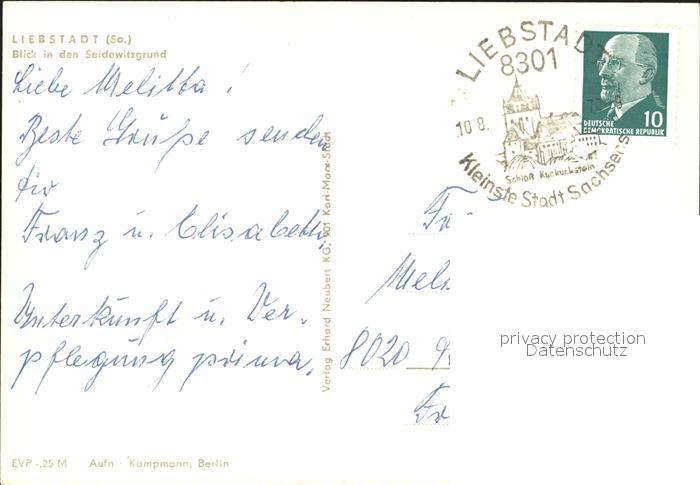 LIEBSTADT (Sa.)
Blick in den Seidewitzgrund
Liebe Melitta!
Beste Grüße senden
dir
Franz u. Elisabeth,
Unterkunft u. Ver-
pflegung prima,
EVP -,25 M Aufn. Kampmann, Berlin
Verlag Erhard Neubert KG, 901 Karl-Marx-Stadt
LIEBSTADT
8301
10.8.
Schloß Kuckuckstein
Kleinste Stadt Sachsens
10
DEUTSCHE
DEMOKRATISCHE REPUBLIK
8020
privacy protection
Datenschutz